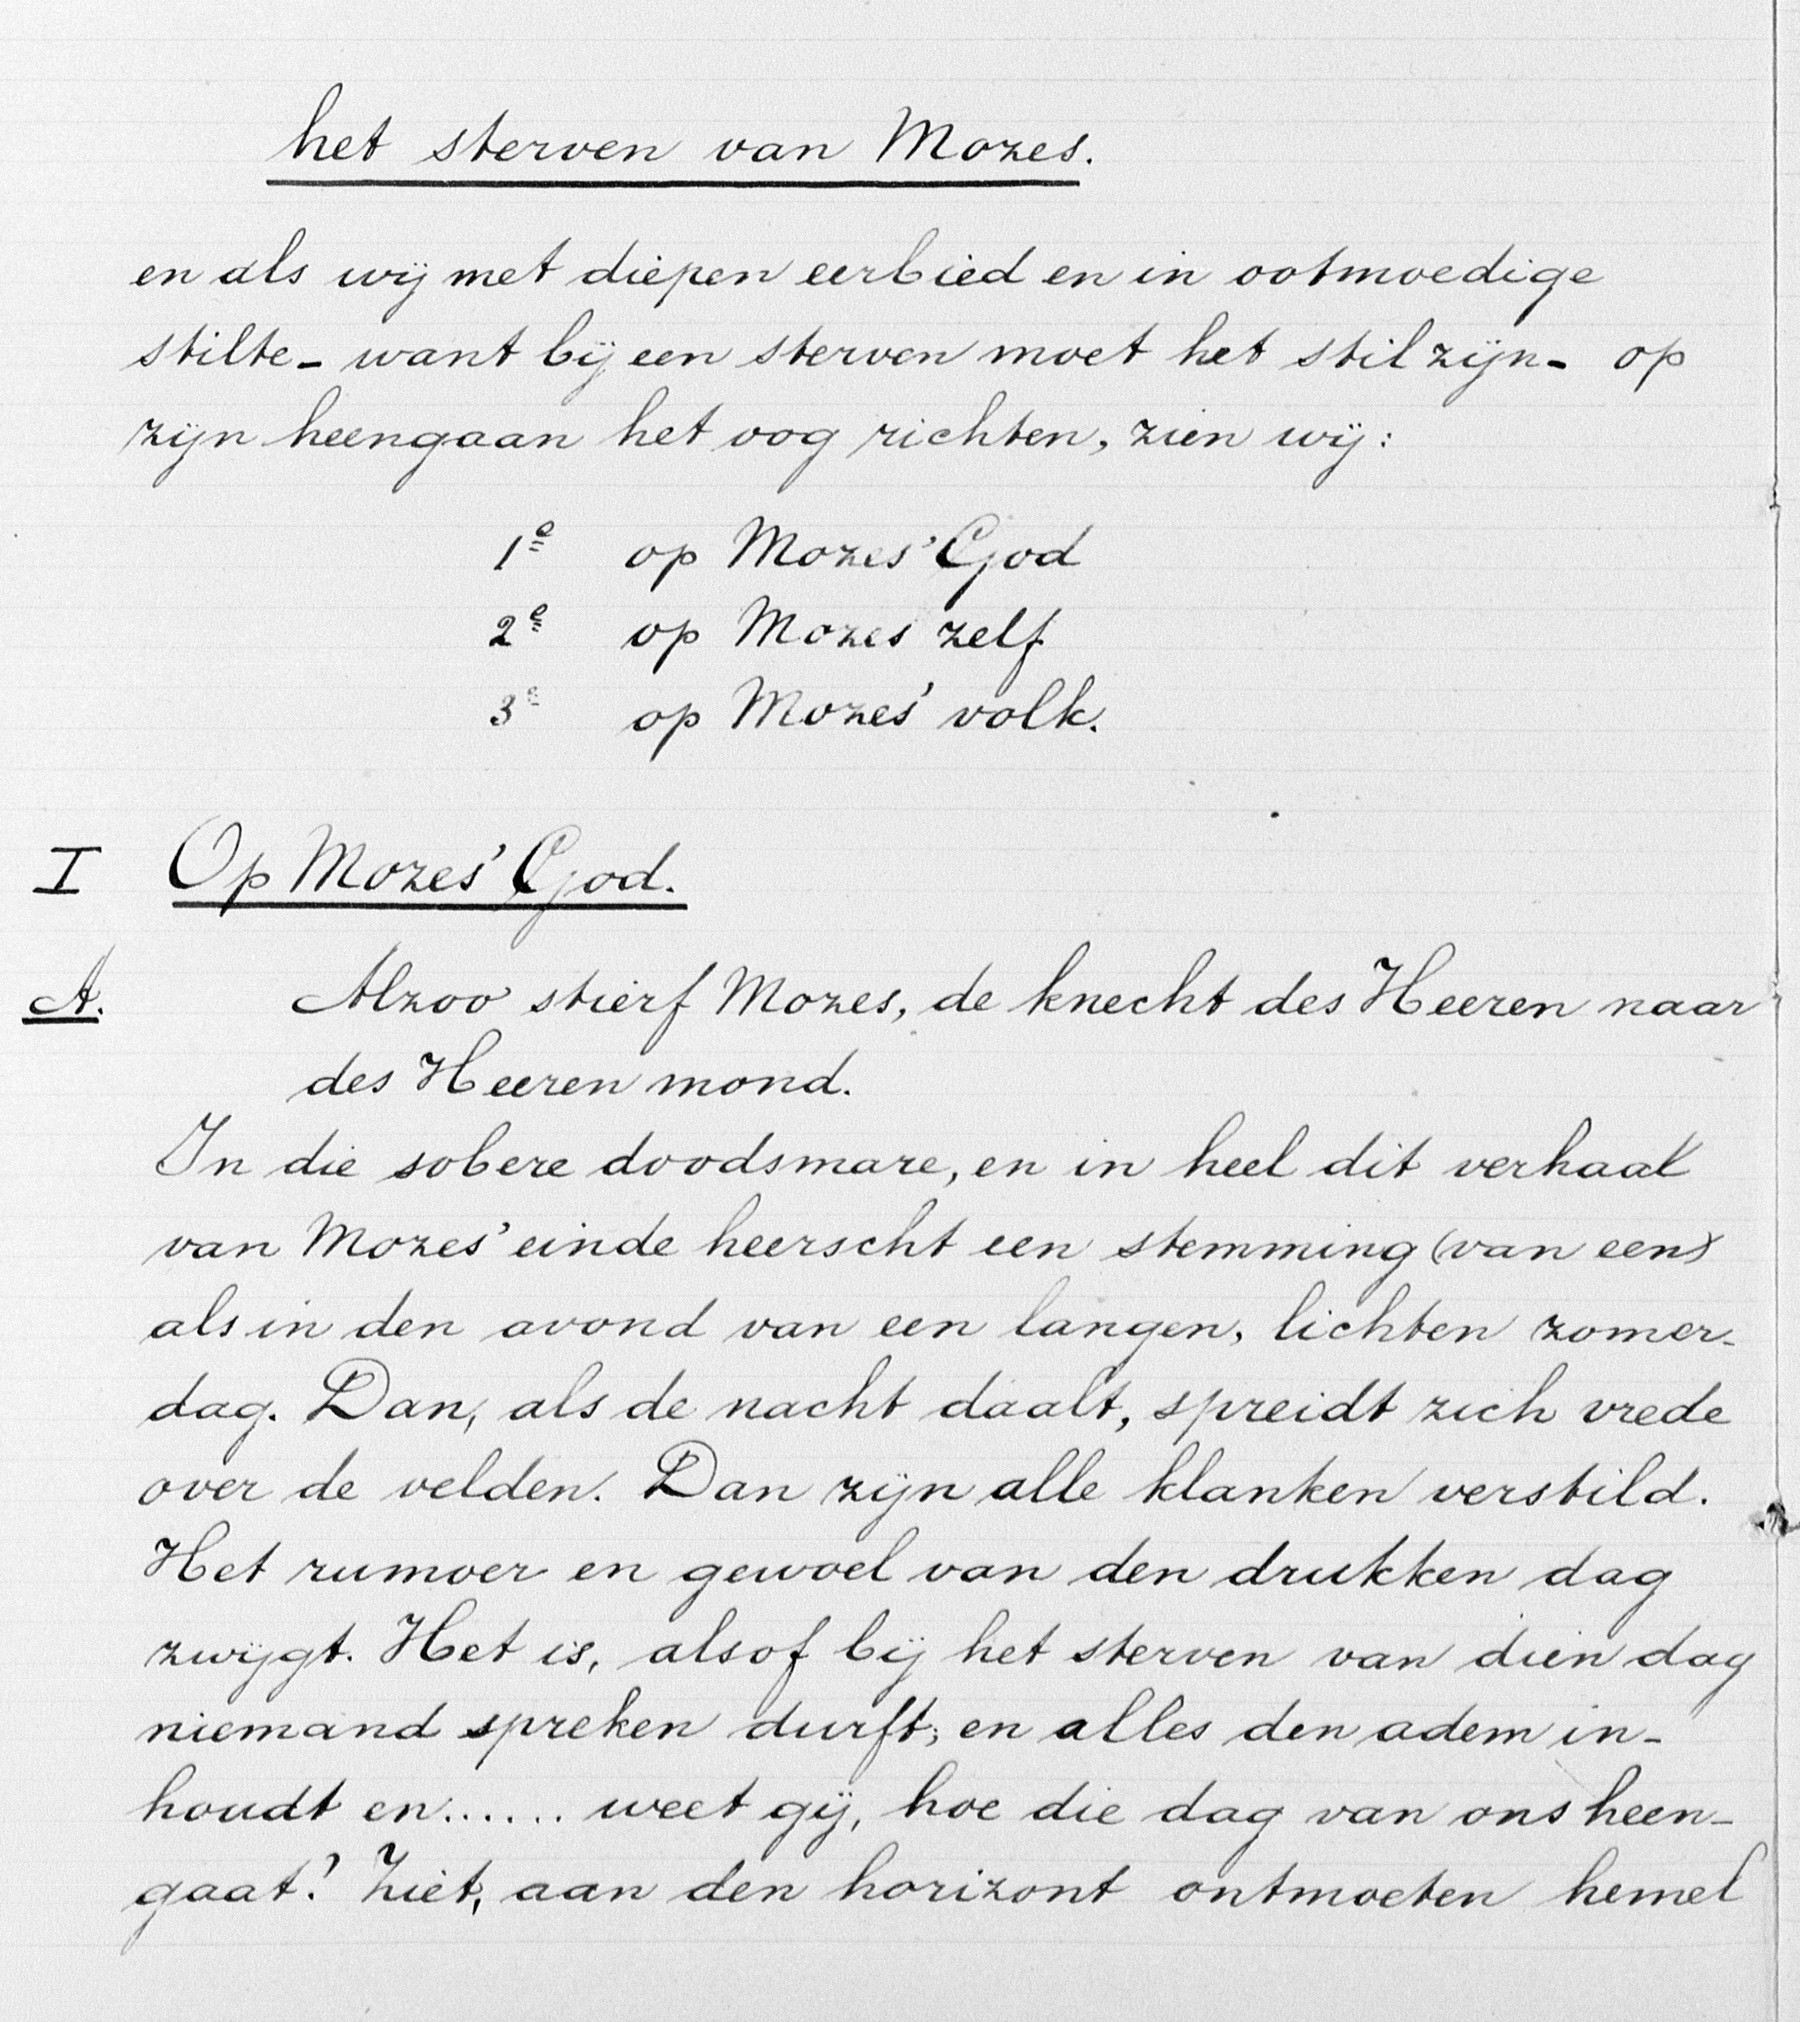 het sterven van Mozes.
en als wij met diepen eerbied en in ootmoedige
stilte - want bij een sterven moet het stil zijn - op
zijn heengaan het oog richten, zien wij:
1e op Mozes' God
2e op Mozes zelf
3e op Mozes' volk.
I Op Mozes' God.
A. Alzoo stierf Mozes, de knecht des Heeren naar
des Heeren mond.
In die sobere doodsmare, en in heel dit verhaal
van Mozes' einde heerscht een stemming (van een)
als in den avond van een langen, lichten zomer-
dag. Dan, als de nacht daalt, spreidt zich vrede
over de velden. Dan zijn alle klanken verstild.
Het rumoer en gewoel van den drukken dag
zwijgt. Het is, alsof bij het sterven van dien dag
niemand spreken durft; en alles den adem in-
houdt en...... weet gij, hoe die dag van ons heen-
gaat? Ziet, aan den horizont ontmoeten hemel